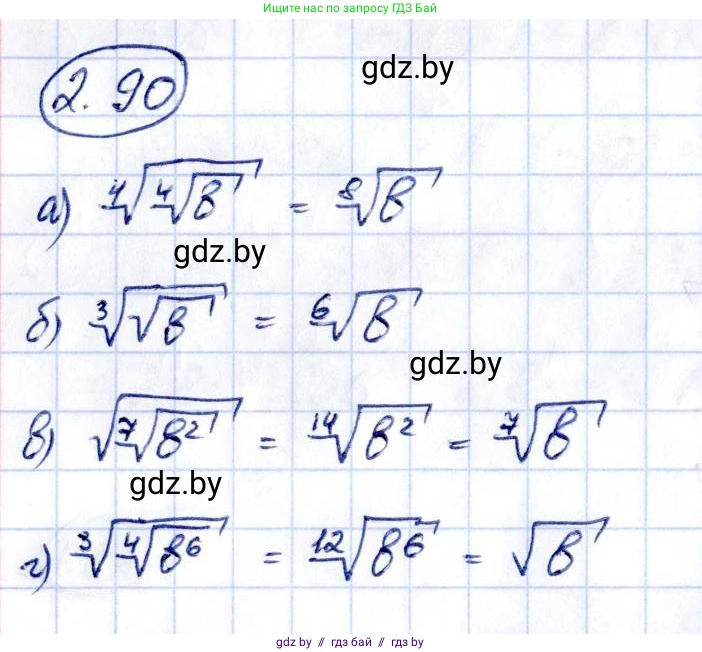 Ищите нас по запросу ГДЗ Бай
2.90
gdz.by
а) ⁴√(⁴√b) = ⁸√b
gdz.by
б) ³√(√b) = ⁶√b
gdz.by
в) √(⁷√(b²)) = ¹⁴√(b²) = ⁷√b
gdz.by
г) ³√(⁴√(b⁶)) = ¹²√(b⁶) = √b
gdz by // гдз бай // гяз by